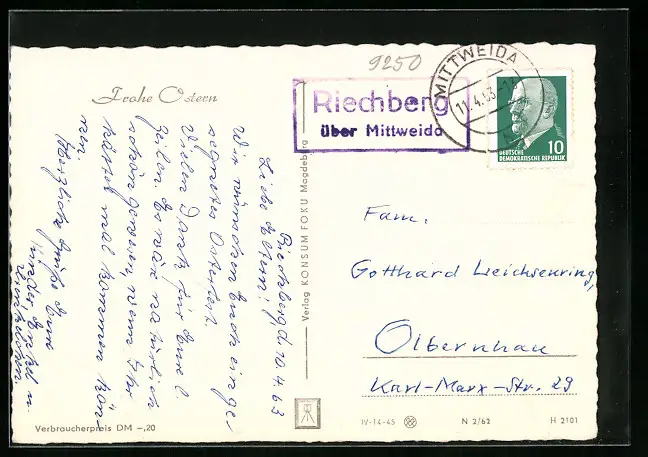 9250
Frohe Ostern
Riechberg
über Mittweida
MITTWEIDA
11.4.63
10
DEUTSCHE
DEMOKRATISCHE REPUBLIK
Riechberg, d. 10.4.63
Liebe Eltern!
Wir wünschen Euch ein ge-
segnetes Osterfest.
Vielen Dank für Eure l.
Zeilen. Es wär natürlich
schön gewesen, wenn Ihr
mal kommen kön-
Herzliche Grüße Eure
Kinder Enkel u.
Verlag KONSUM FOKU Magdeburg
Fam.
Gotthard Leichsenring,
Olbernhau
Karl-Marx-Str. 29
Verbraucherpreis DM -,20
IV-14-45
N 2/62
H 2101